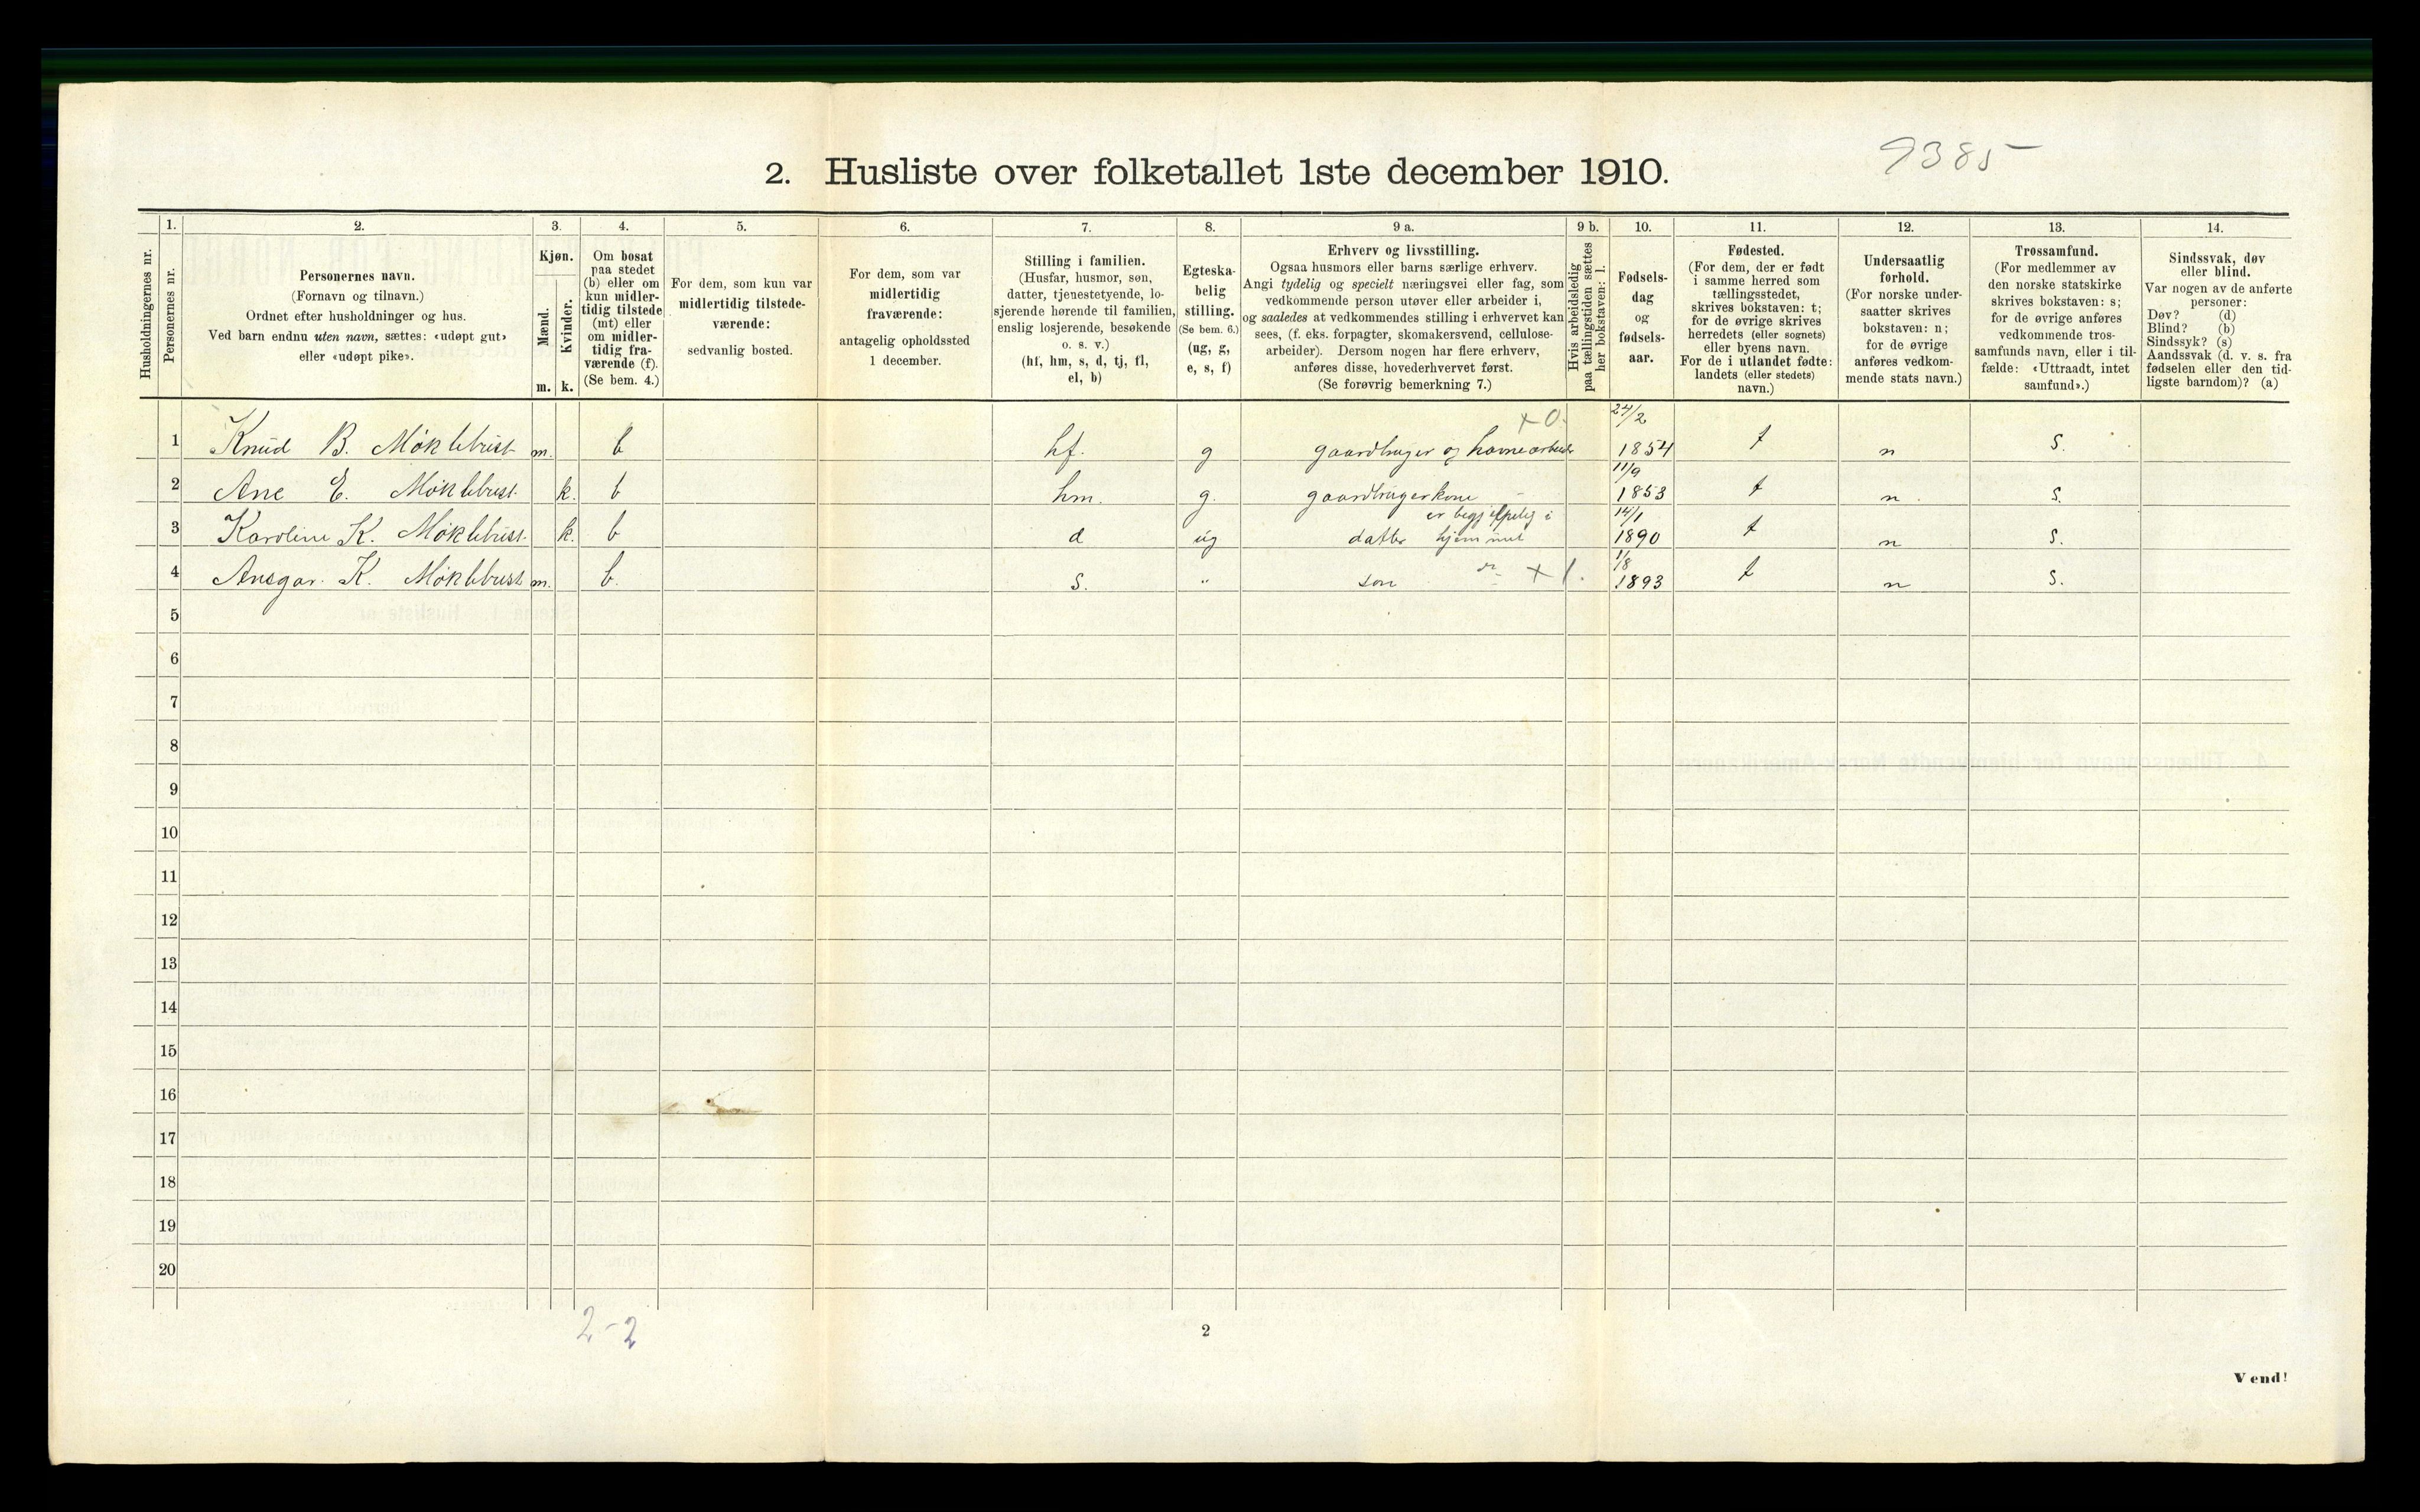 9385
2. Husliste over folketallet 1ste december 1910.
Husholdningernes nr.
1.
Personernes nr.
2.
Personernes navn.
(Fornavn og tilnavn.)
Ordnet efter husholdninger og hus.
Ved barn endnu uten navn, sættes: «udøpt gut»
eller «udøpt pike».
3.
Kjøn.
Mænd.
Kvinder.
m. k.
4.
Om bosat
paa stedet
(b) eller om
kun midler-
tidig tilstede
(mt) eller
om midler-
tidig fra-
værende (f).
(Se bem. 4.)
5.
For dem, som kun var
midlertidig tilstede-
værende:
sedvanlig bosted.
6.
For dem, som var
midlertidig
fraværende:
antagelig opholdssted
1 december.
7.
Stilling i familien.
(Husfar, husmor, søn,
datter, tjenestetyende, lo-
sjerende hørende til familien,
enslig losjerende, besøkende
o. s. v.)
(hf, hm, s, d, tj, fl,
el, b)
8.
Egteska-
belig
stilling.
(Se bem. 6.)
(ug, g,
e, s, f)
9 a.
Erhverv og livsstilling.
Ogsaa husmors eller barns særlige erhverv.
Angi tydelig og specielt næringsvei eller fag, som
vedkommende person utøver eller arbeider i,
og saaledes at vedkommendes stilling i erhvervet kan
sees, (f. eks. forpagter, skomakersvend, cellulose-
arbeider). Dersom nogen har flere erhverv,
anføres disse, hovederhvervet først.
(Se forøvrig bemerkning 7.)
9 b.
Hvis arbeidsledig
paa tællingstiden sættes
her bokstaven: l.
10.
Fødsels-
dag
og
fødsels-
aar.
11.
Fødested.
(For dem, der er født
i samme herred som
tællingsstedet,
skrives bokstaven: t;
for de øvrige skrives
herredets (eller sognets)
eller byens navn.
For de i utlandet fødte:
landets (eller stedets)
navn.)
12.
Undersaatlig
forhold.
(For norske under-
saatter skrives
bokstaven: n;
for de øvrige
anføres vedkom-
mende stats navn.)
13.
Trossamfund.
(For medlemmer av
den norske statskirke
skrives bokstaven: s;
for de øvrige anføres
vedkommende tros-
samfunds navn, eller i til-
fælde: «Uttraadt, intet
samfund».)
14.
Sindssvak, døv
eller blind.
Var nogen av de anførte
personer:
Døv? (d)
Blind? (b)
Sindssyk? (s)
Aandssvak (d. v. s. fra
fødselen eller den tid-
ligste barndom)? (a)
1 Knud B. Møklebust m. b hf. g gaardbruger og havnearbeider x 0. 24/2 1854 t n s.
2 Ane E. Møklebust k. b hm. g. gaardbrugerkone 11/9 1853 t n. s.
3 Karoline K. Møklebust k. b d ug datter er hjemmet 14/1 1890 t n s.
4 Ansgar K. Møklebust m. b. s. " søn x 1. 1/8 1893 t n s.
5
6
7
8
9
10
11
12
13
14
15
16
17
18
19
20
2-2
2
Vend!